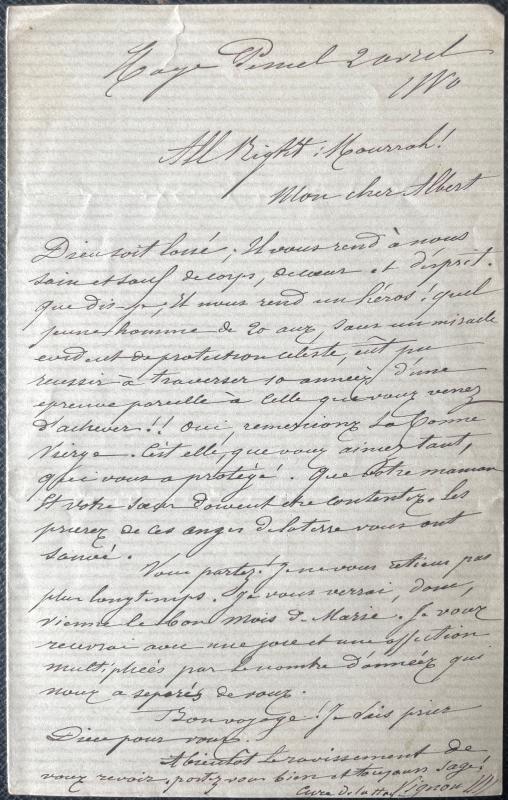 Haye Pesnel 2 avril
All Right! Hourrah!
Mon cher Albert
Dieu soit loué, Il vous rend à nous
sain et sauf de corps, de cœur et d'esprit.
que dis-je, Il nous rend un héros! quel
jeune homme de 20 anz, sans un miracle
evident de protection céleste, eût pu
reussir à traverser 10 anneéz d'une
epreuve pareille à celle que vouz venez
d'achever!! Oui, remercionz La Bonne
Vierge. C'est elle, que vouz aimez tant,
qui vous a protégé. Que Votre maman
Et votre sœur doivent etre contentez. les
prierez de ces angez de la terre vous ont
sauvé.
Vous partez! Je ne vous retiens pas
plus longtemps. Je vous verrai, donc,
vienne le bon mois de Marie. Je vouz
recevrai avec une joie et une affection
multipliéez par le nombre d'annéez qui
nouz a séparéz de vouz.
Bon voyage! Je vais prier
Dieu pour vouz.
A bientôt le ravissement de
vouz revoir, portez vouz bien et toujours sage!
Curé de la Haye